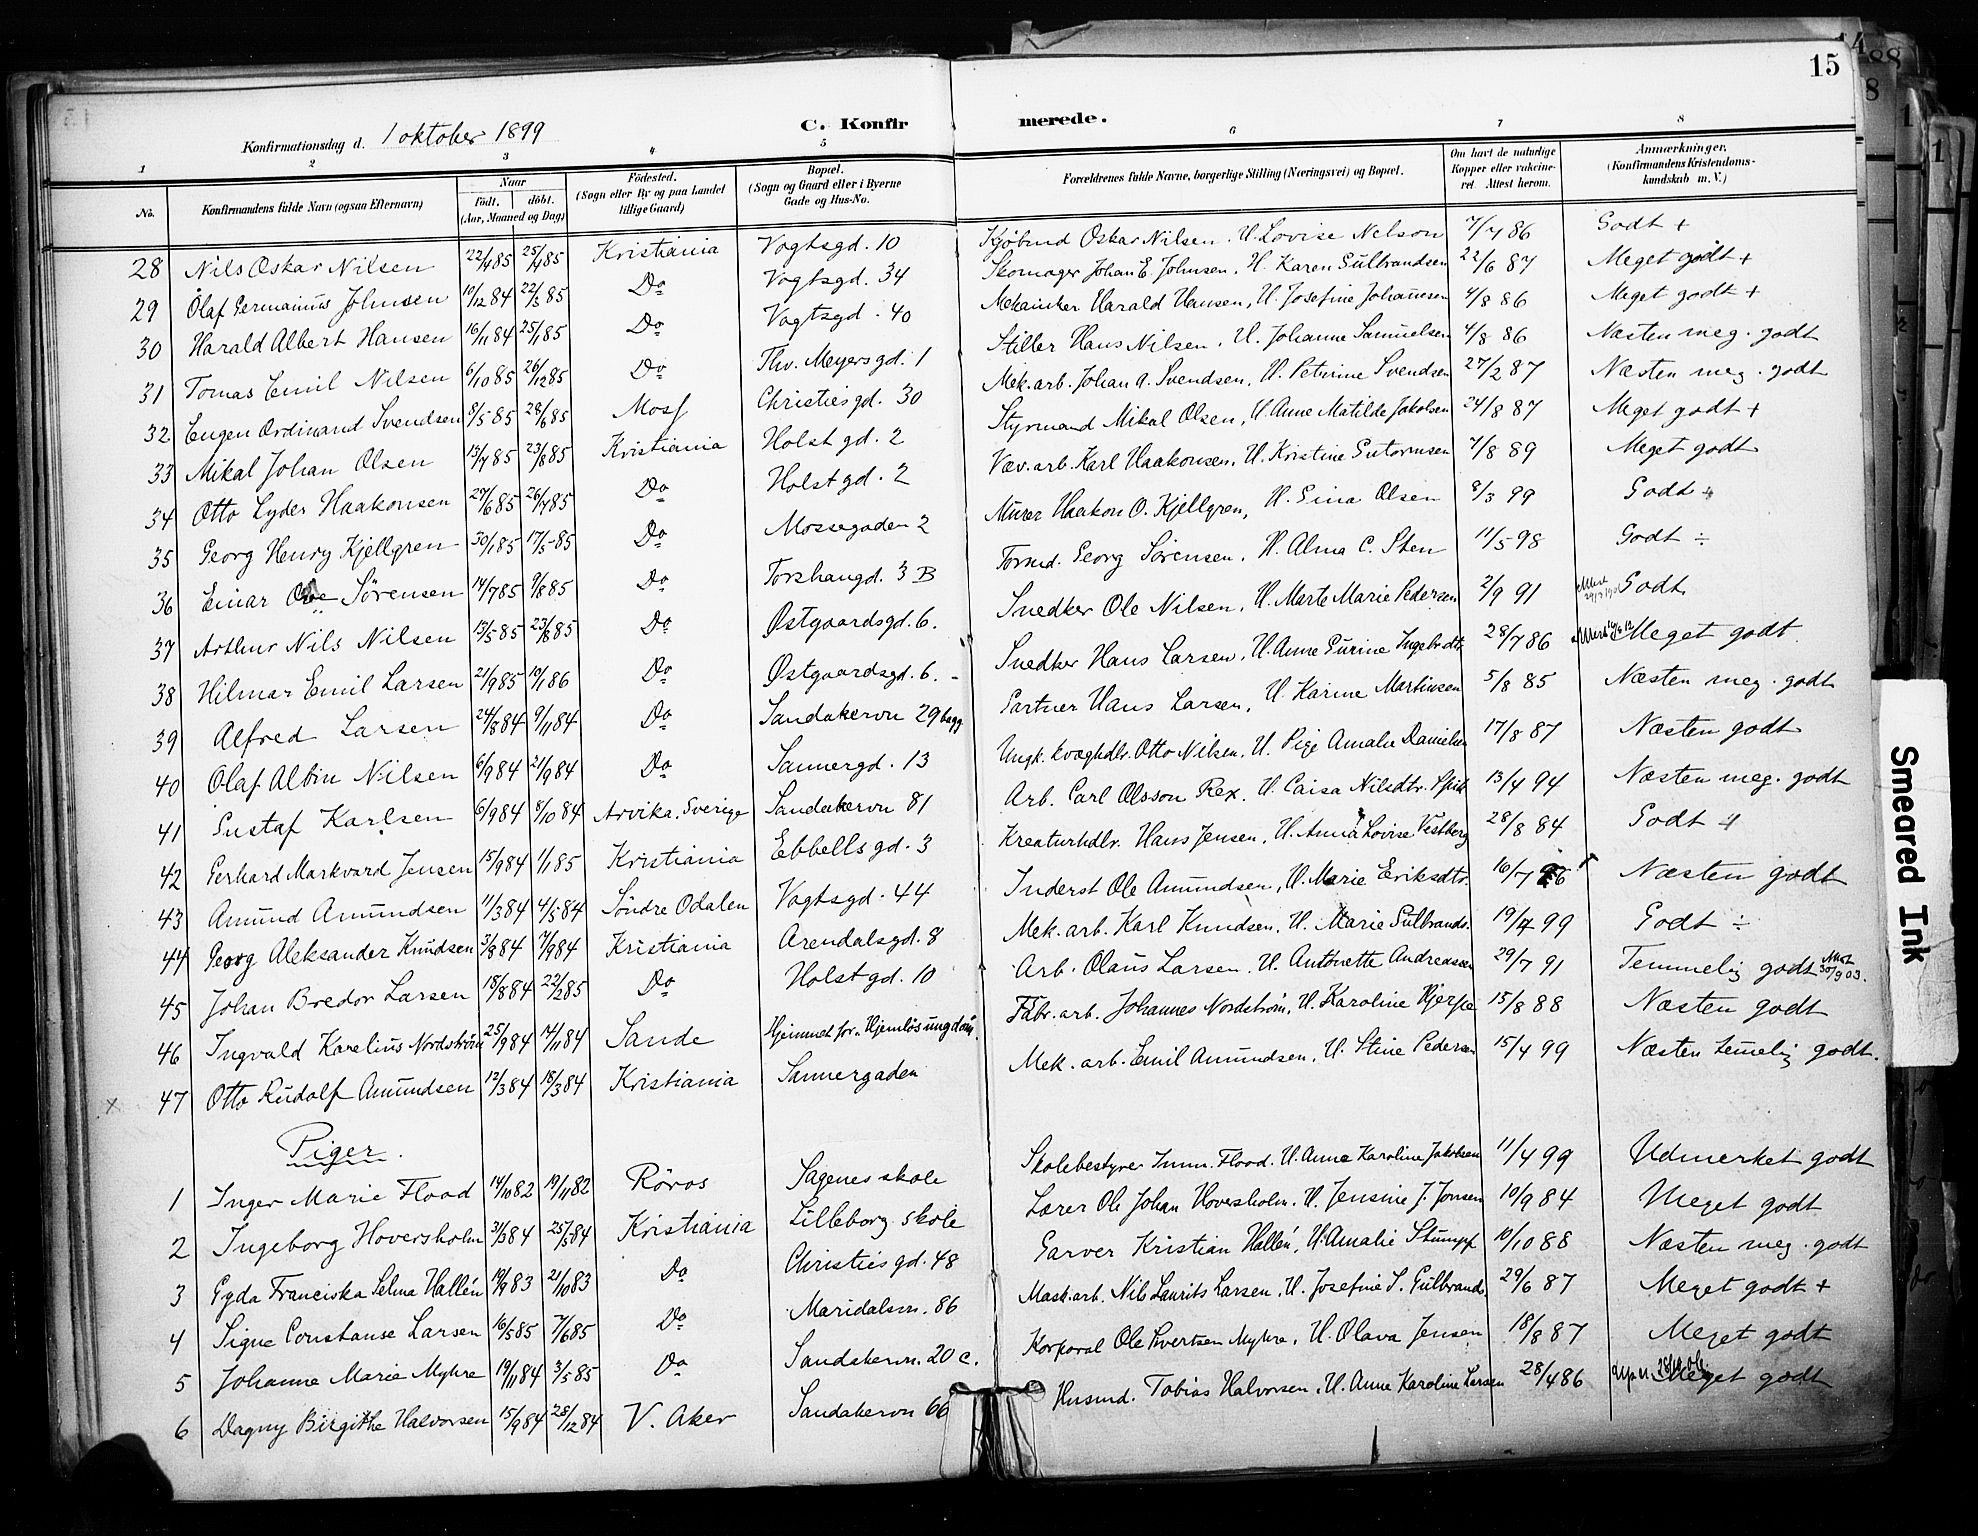 15
C. Konfirmerede.
Konfirmationsdag d. 1 oktober 1899
1 2 3 4 5 6 7 8
No. Konfirmandens fulde Navn (ogsaa Efternavn) Naar Født. døbt. (Aar, Maaned og Dag) Fødested. (Sogn eller By og paa Landet tillige Gaard) Bopæl. (Sogn og Gaard eller i Byerne Gade og Hus-No. Forældrenes fulde Navne, borgerlige Stilling (Næringsvei) og Bopæl. Om havt de naturlige Kopper eller vakcineret. Attest herom. Anmærkninger, (Konfirmandens Kristendomskundskab m. V.)
28 Nils Oskar Nilsen 22/4 85 25/4 85 Kristiania Vogtsgd. 10 Kjøbmd Oskar Nilsen. H. Lovise Nelson 7/7 86 Godt +
29 Olaf Germanius Johnsen 10/12 84 22/3 85 Do Vogtsgd. 34 Skomager Johan E. Johnsen, H. Karen Gulbrandsen 22/6 87 Meget godt +
30 Harald Albert Hansen 16/11 84 25/1 85 Do Vogtsgd. 40 Mekaniker Harald Hansen, H. Josefine Johannesen 4/8 86 Meget godt +
31 Tomas Emil Nilsen 6/10 85 26/12 85 Do Thv. Meyers gd. 1 Stiller Hans Nilsen, H. Johanne Samuelsen 4/8 86 Næsten meg. godt
32 Eugen Ordinand Svendsen 9/5 85 28/6 85 Moss Christies gd. 30 Mek. arb. Johan A. Svendsen, H. Petrine Svendsen 27/2 87 Næsten meg. godt
33 Mikal Johan Olsen 13/7 85 23/8 85 Kristiania Holst gd. 2 Styrmand Mikal Olsen, H. Anne Matilde Jakobsen 24/8 87 Meget godt +
34 Otto Lyder Haakonsen 27/6 85 26/7 85 Do Holst gd. 2 Væv. arb. Karl Haakonsen, H. Kristine Gutormsen 7/8 89 Meget godt
35 Georg Henry Kjellgren 30/1 85 17/5 85 Do Mossegaden 2 Murer Haakon O. Kjellgren, H. Gina Olsen 8/3 99 Godt +
36 Einar Sørensen 14/7 85 9/8 85 Do Torshaugd. 3 B Georg Sørensen, H. Alma C. Sten 11/5 98 Godt ÷
37 Arthur Nils Nilsen 13/5 85 23/8 85 Do Østgaardsgd. 6. Snedker Ole Nilsen, H. Marte Marie Pedersen 2/9 91 Attest Godt
38 Hilmar Emil Larsen 21/9 85 10/1 86 Do Østgaardsgd. 6. Snedker Hans Larsen, H. Anne Gurine Ingebrdtr. 28/7 86 Attest Meget godt.
39 Alfred Larsen 24/8 84 9/11 84 Do Sandakervn 29 bagg. Gartner Hans Larsen, H. Karine Martinsen 5/8 85 Næsten meg. godt
40 Olaf Albin Nilsen 6/9 84 21/9 84 Do Sannergd. 13 Ungk. kvæghdlr. Otto Nilsen, H. Pige Amalie Danielsen 17/8 87 Næsten godt
41 Gustaf Karlsen 6/9 84 8/10 84 Arvika. Sverige Sandakervn 81 Arb. Carl Olsson Rex. H. Caisa Nilsdtr. 13/4 94 Næsten meg. godt
42 Gerhard Markvard Jensen 15/9 84 1/1 85 Kristiania Ebbells gd. 3 Kreaturhdlr. Hans Jensen, H. Anna Lovise Vestberg 28/8 84 Godt +
43 Amund Amundsen 11/3 84 4/5 84 Søndre Odalen Vogtsgd. 44 Inderst Ole Amundsen, H. Marie Eriksdtr. 16/7 Næsten godt
44 Georg Aleksander Knudsen 3/8 84 7/9 84 Kristiania Arendalsgd. 8 Mek. arb. Karl Knudsen, H. Marie Gulbrands. 19/7 99 Godt ÷
45 Johan Bredor Larsen 18/8 84 22/2 85 Do Holst gd. 10 Arb. Olaus Larsen. H. Antonette Andreasen 29/7 91 Temmelig godt Attest 30/9 03.
46 Ingvald Karelius Nordstrøm 25/9 84 14/11 84 Sande Hjemmet for Hjemløs ungdom. Fabr. arb. Johannes Nordstrøm, H. Karoline Hjerpe 15/8 88 Næsten godt
x 47 Otto Rudolf Amundsen 12/3 84 18/3 84 Kristiania Sannergaden Mek. arb. Emil Amundsen, H. Stine Pedersen 15/4 99 Næsten temelig godt.
Piger.
1 Inger Marie Flood 14/10 82 19/11 82 Røros Sagenes skole Skolebestyrer Imm. Flood. H. Anne Karoline Jakobsen 11/4 99 Udmerket godt
2 Ingeborg Hoversholm 31/3 84 25/5 84 Kristiania Lilleborg skole Lærer Ole Johan Hoversholm. H. Jensine J. Jonsen 10/9 84 Meget godt
3 Gyda Franciska Selma Hallén 19/9 83 21/10 83 Do Christies gd. 48 Garver Kristian Hallén, H. Amalie Stumpf 10/10 88 Næsten meg. godt
4 Signe Constanse Larsen 16/5 85 7/6 85 Do Maridalsvn. 86 Mask. arb. Nils Laurits Larsen, H. Josefine S. Gulbrands. 29/6 87 Meget godt +
5 Johanne Marie Myhre 19/11 84 3/5 85 Do Sandakervn. 20 c. Korporal Ole Syvertsen Myhre, H. Olava Jensen 18/8 87 Meget godt
6 Dagny Birgithe Halvorsen 15/9 84 28/12 84 V. Aker Sandakervn 66 Husmd. Tobias Halvorsen, H. Anne Karoline Larsen 28/4 86 Meget godt
Smeared Ink